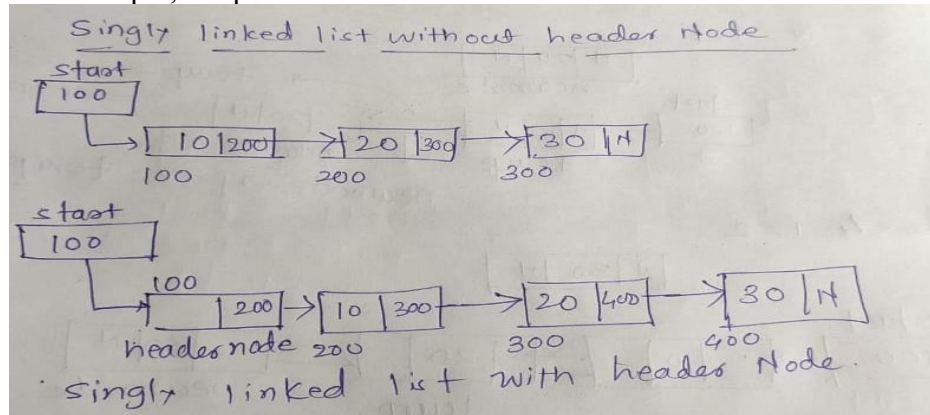 Singly linked list without header Node
start
100
10 200 20 300 30 N
100 200 300
start
100
100
200 10 300 20 400 30 N
header node 200 300 400
Singly linked list with header Node.